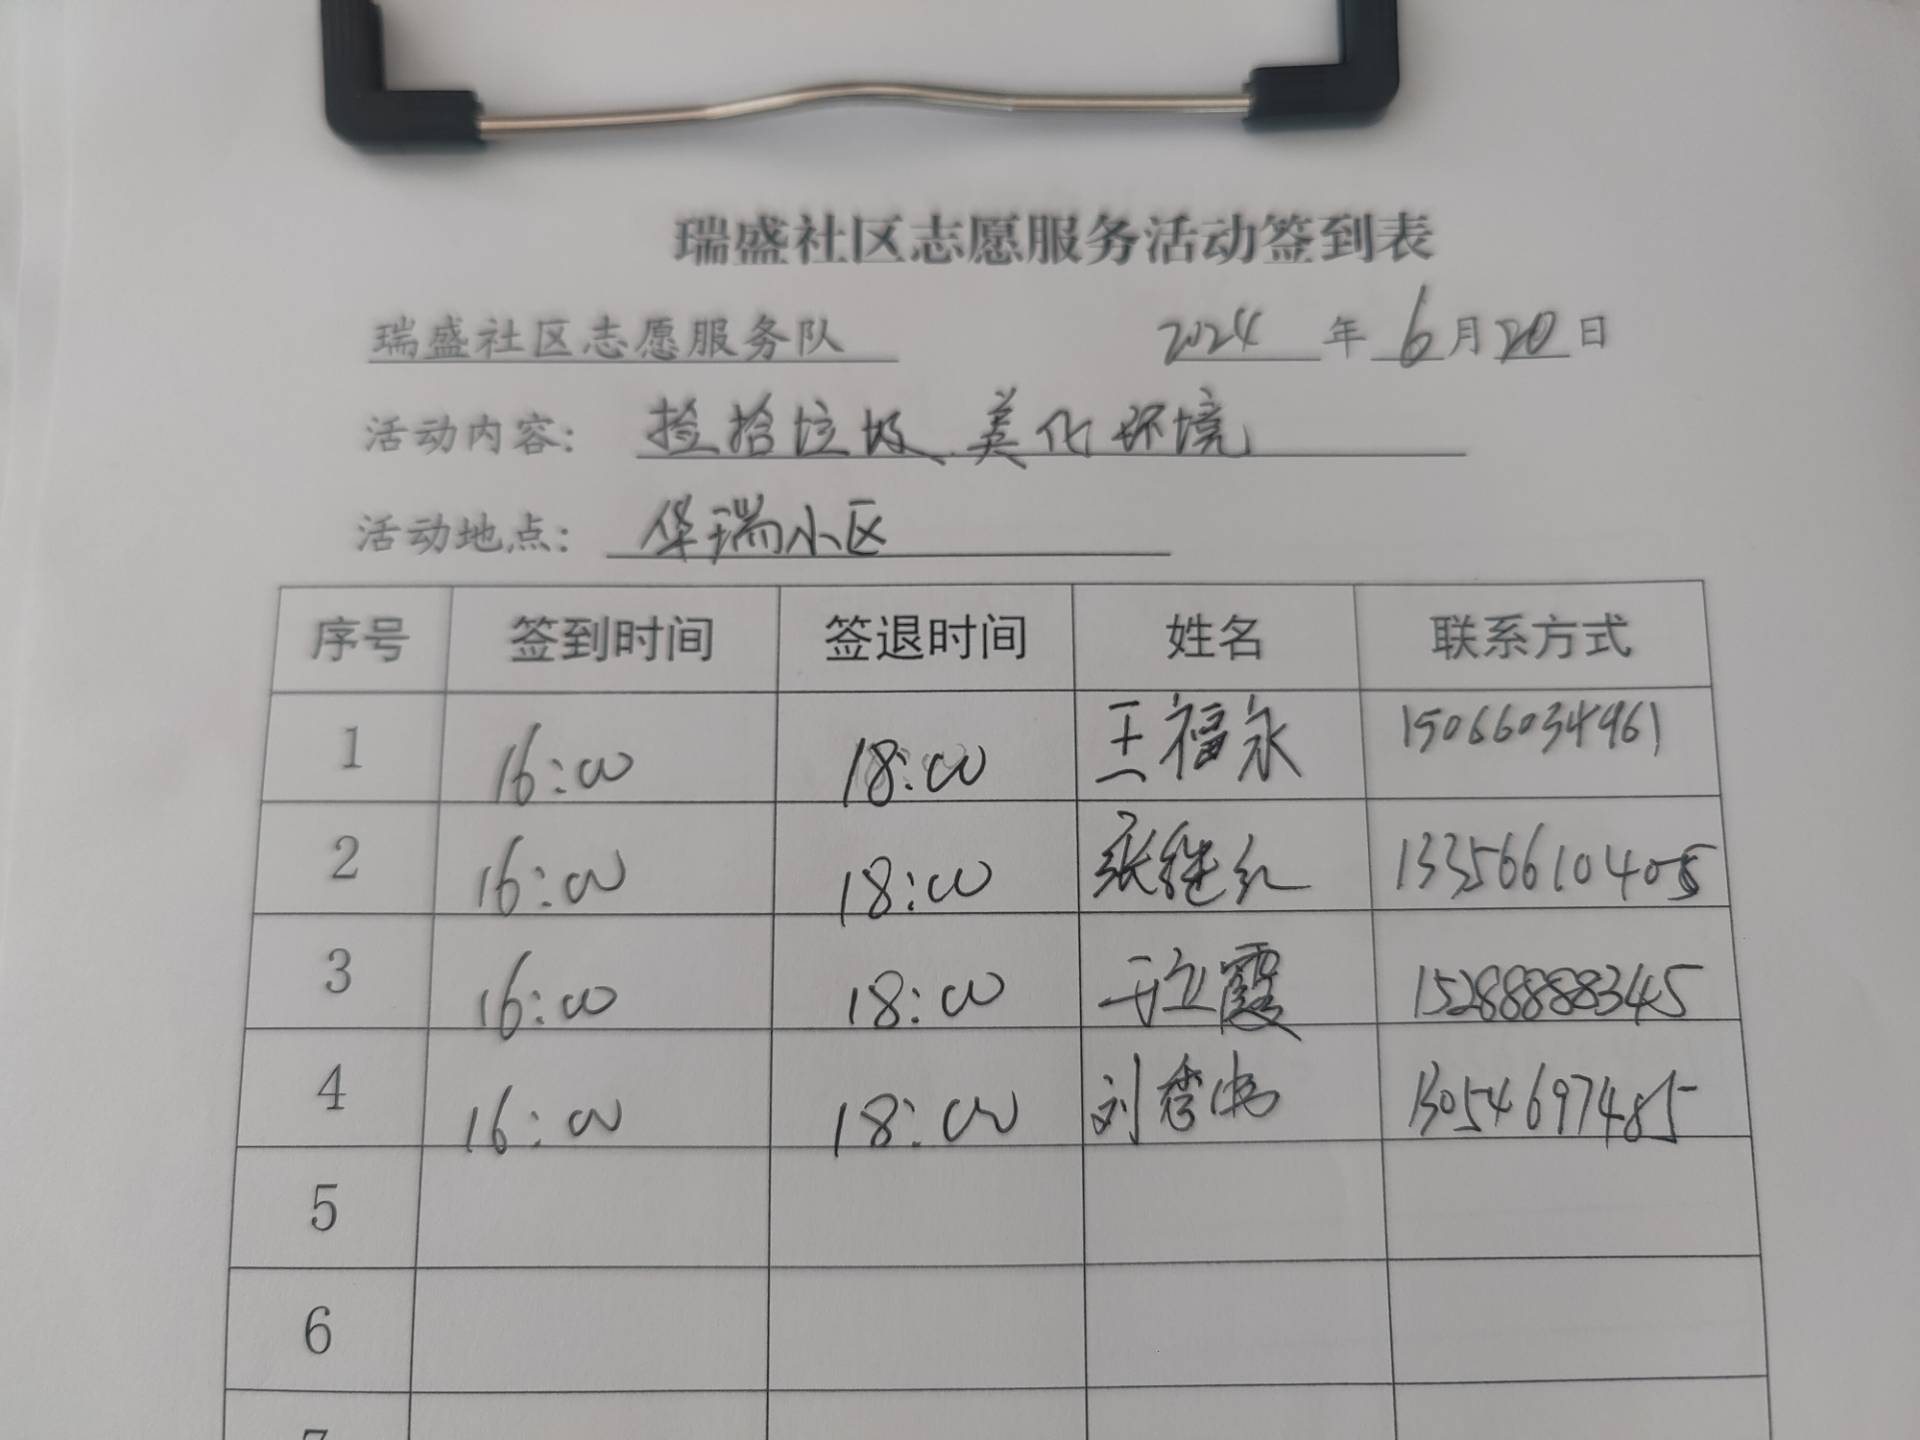 瑞盛社区志愿服务活动签到表
瑞盛社区志愿服务队 2024 年 6 月 20 日
活动内容: 捡拾垃圾 美化环境
活动地点: 华瑞小区
序号 签到时间 签退时间 姓名 联系方式
1 16:00 18:00 王福永 15066034961
2 16:00 18:00 张继红 13356610405
3 16:00 18:00 于立霞 15288888345
4 16:00 18:00 刘秀 13054697485
5
6
7